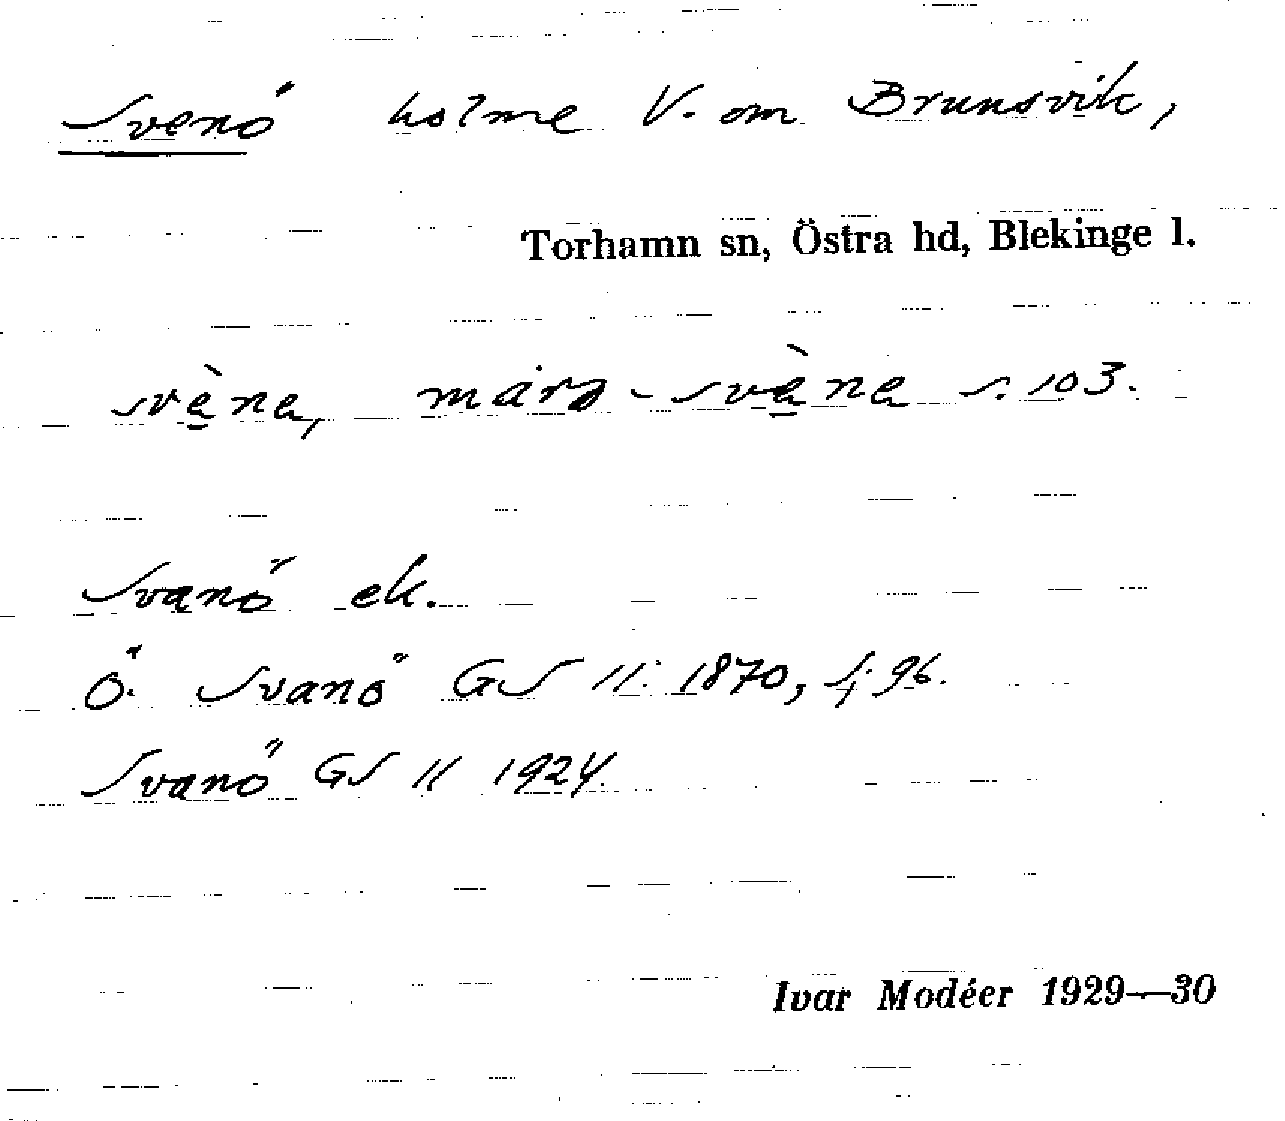 Svenö holme V. om Brunsvik,
Torhamn sn, Östra hd, Blekinge l.
svèna, märs-svèna s. 103.
Svanö ek.
Ö. Svanö GS 11: 1870,
Svanö GS 11 1924.
Ivar Modéer 1929—30